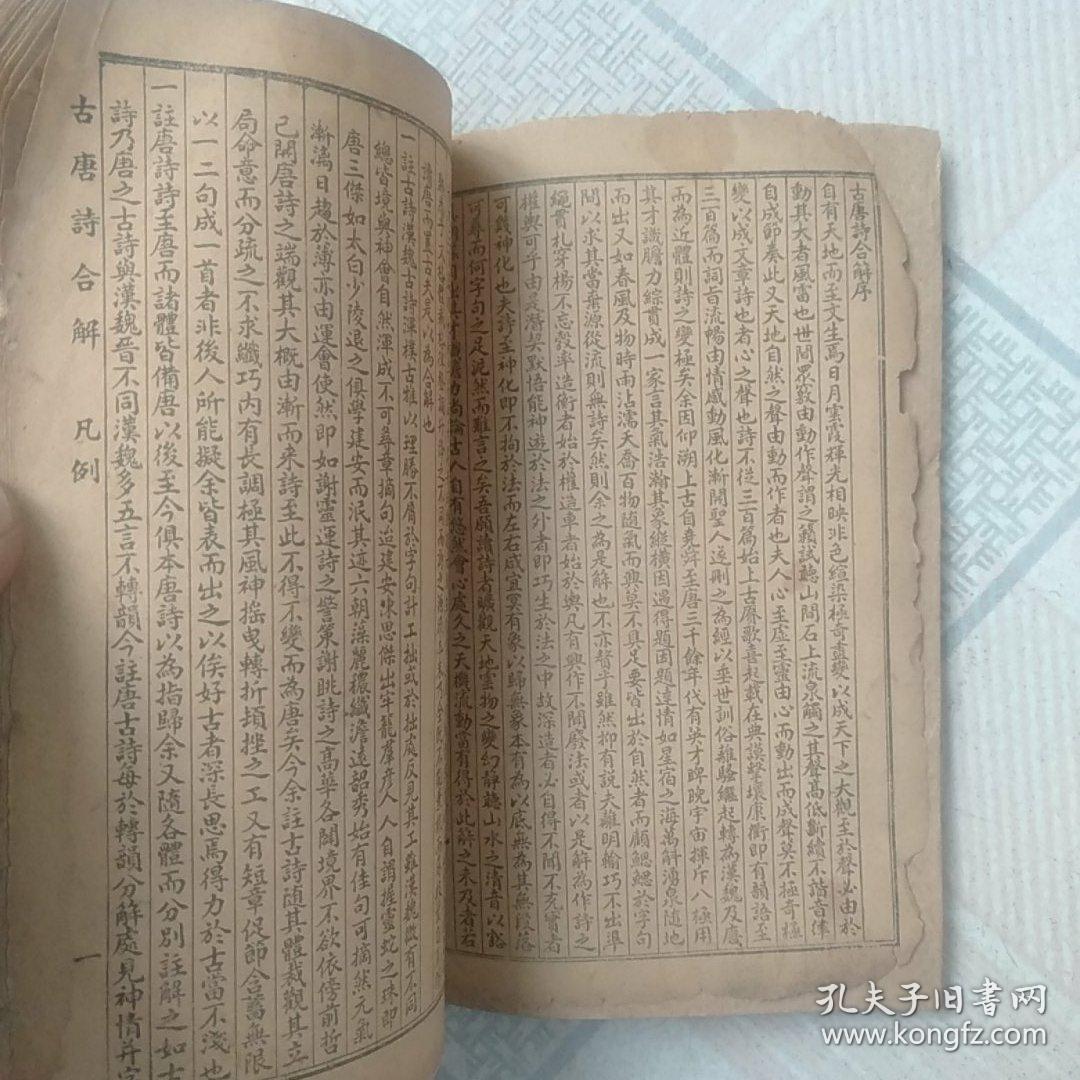 古唐詩合解序
自有天地而至文生焉日月雲霞輝光相映非色絢染極奇盡變以成天下之大觀至於聲必由於
動其大者風雷也世間眾竅由動作聲謂之籟試聽山間石上流泉觸之其聲高低斷續不諧音律
自成節奏此又天地自然之聲由動而作者也夫人心至虛至靈由心而動出而成聲莫不極奇極
變以成文章詩也者心之聲也詩不從三百篇始上古賡歌喜起載在典謨擊壤康衢即有韻語至
三百篇而詞旨流暢由情感動風化漸開聖人逐刪之為經以垂世訓俗離騷繼起轉為漢魏及慶
而為近體則詩之變極矣余因仰溯上古自堯舜至唐三千餘年代有英才睥睨宇宙揮斥八極用
其才識膽力綜貫成一家言其氣浩瀚其象縱橫因遇得題因題達情如星宿之海萬斛湧泉隨地
而出又如春風及物時雨沾濡夭喬百物隨氣而興莫不具足要皆出於自然者而顧鰓鰓於字句
間以求其當棄源從流則無詩矣然則余之為是解也不亦贅乎雖然抑有說夫離明輸巧不出準
繩貫札穿楊不忘彀率造衡者始於權造車者始於輿凡有興作不開廢法或者以是解為作詩之
權輿可乎由是潛契默悟能神遊於法之外者即巧生於法之中故深造者必自得不聞不克實者
可幾神化也夫詩至神化即不拘於法而左右咸宜冥有象以歸無象本有為以底無為其無段落
可尋而何字句之足泥然而難言之矣吾願讀詩者曠觀天地雲物之變幻靜聽山水之清音以豁
人自有悠然會心處久之天機流動當有得於此解之未及者若
讀唐而置古夫是以為合解也
一註古詩漢魏古詩渾樸古雅以理勝不屑於字句計工拙或於拙處反見其工雖漢魏微有不同
總皆境與神會自然渾成不可尋章摘句迨建安味思傑出牢籠羣彥人人自謂握靈蛇之珠即
唐三傑如太白少陵退之俱學建安而泯其迹六朝藻麗穠纖澹遠韶秀始有佳句可摘然元氣
漸漓日趨於薄亦由運會使然即如謝靈運詩之警策謝眺詩之高華各闢境界不欲依傍前哲
已開唐詩之端觀其大概由漸而来詩至此不得不變而為唐矣今余註古詩随其體裁觀其立
局命意而分疏之不求纖巧内有長調極其風神搖曳轉折頓挫之工又有短章促節含蓄無限
以一二句成一首者非後人所能擬余皆表而出之以俟好古者深長思焉得力於古當不淺也
一註唐詩詩至唐而諸體皆備唐以後至今俱本唐詩以為指歸余又隨各體而分別註解之如古
詩乃唐之古詩與漢魏晉不同漢魏多五言不轉韻今註唐古詩每於轉韻分解處見神情并字
古唐詩合解 凡例 一
孔夫子旧書网
www.kongfz.com